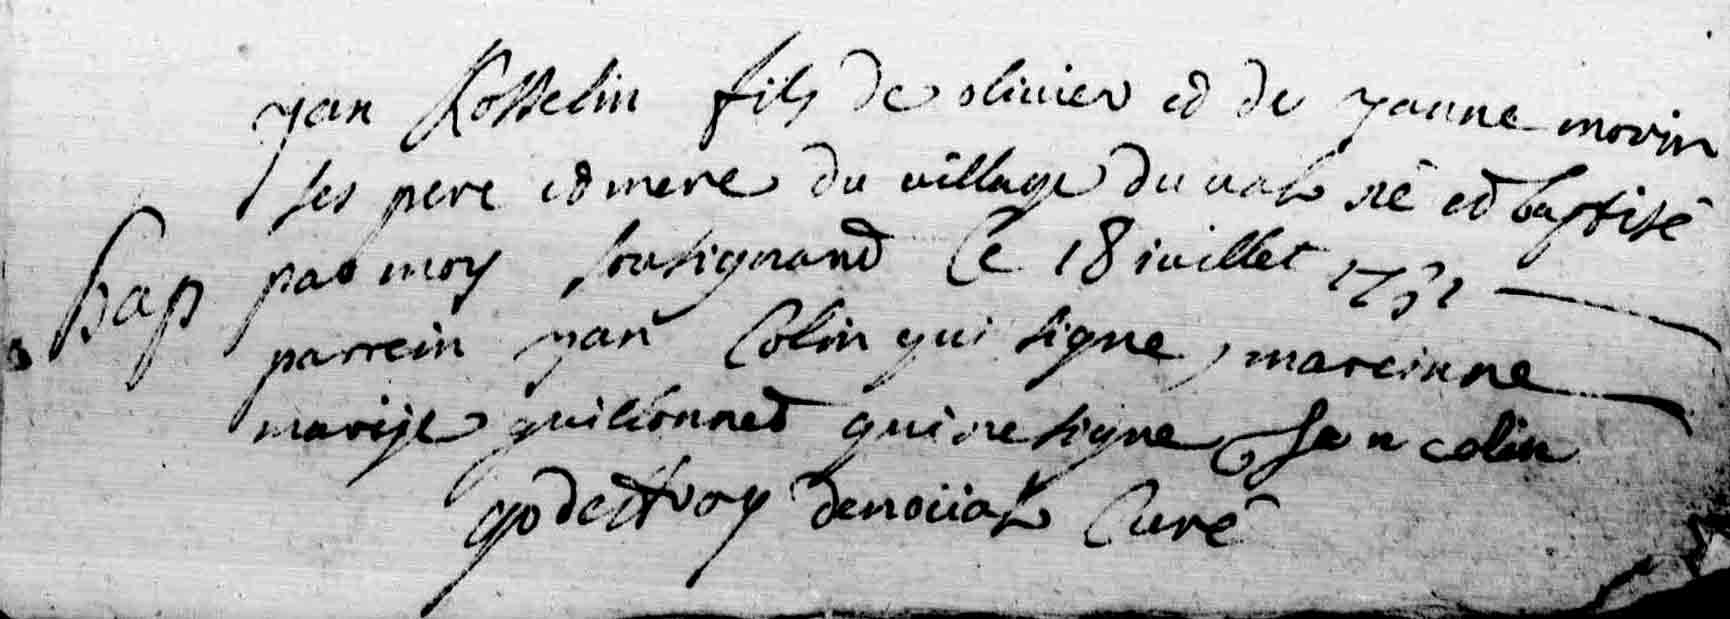 yan Rosselin fils de olivier et de yanne morin
ses pere et mere du village du val né et baptisé
bap par moy sousignand le 18 iuillet 1731
parrein yan Colin qui signe, mareinne
marije guillonned qui ne signe Jan colin
godeffroy denoüal Curé